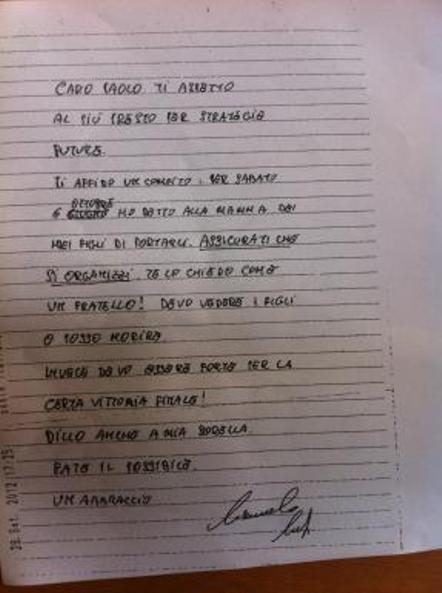 CARO PAOLO TI ASPETTO
AL PIÙ PRESTO PER STRATEGIE
FUTURE.
TI AFFIDO UN COMPITO: PER SABATO
OTTOBRE
6 GIUGNO HO DETTO ALLA MAMMA DEI
MIEI FIGLI DI PORTARLI. ASSICURATI CHE
SI ORGANIZZI. TE LO CHIEDO COME
UN FRATELLO! DEVO VEDERE I FIGLI
O POSSO MORIRE.
INVECE DEVO ESSERE FORTE PER LA
CERTA VITTORIA FINALE!
DILLO ANCHE A MIA SORELLA.
FATE IL POSSIBILE.
UN ABBRACCIO
28 Set. 2012 17:25